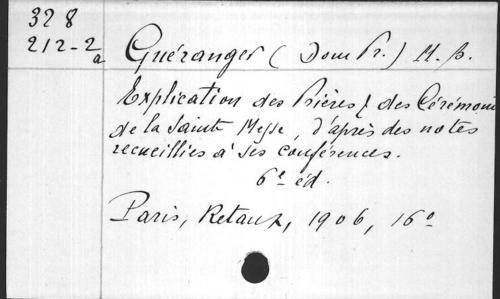 328
212-2a
Guéranger (Dom Pr.) O.S.B.
Explication des Prières & des Cérémonies
de la Sainte Messe, d'après des notes
recueillies à ses conférences.
6e éd.
Paris, Retaux, 1906, 16º